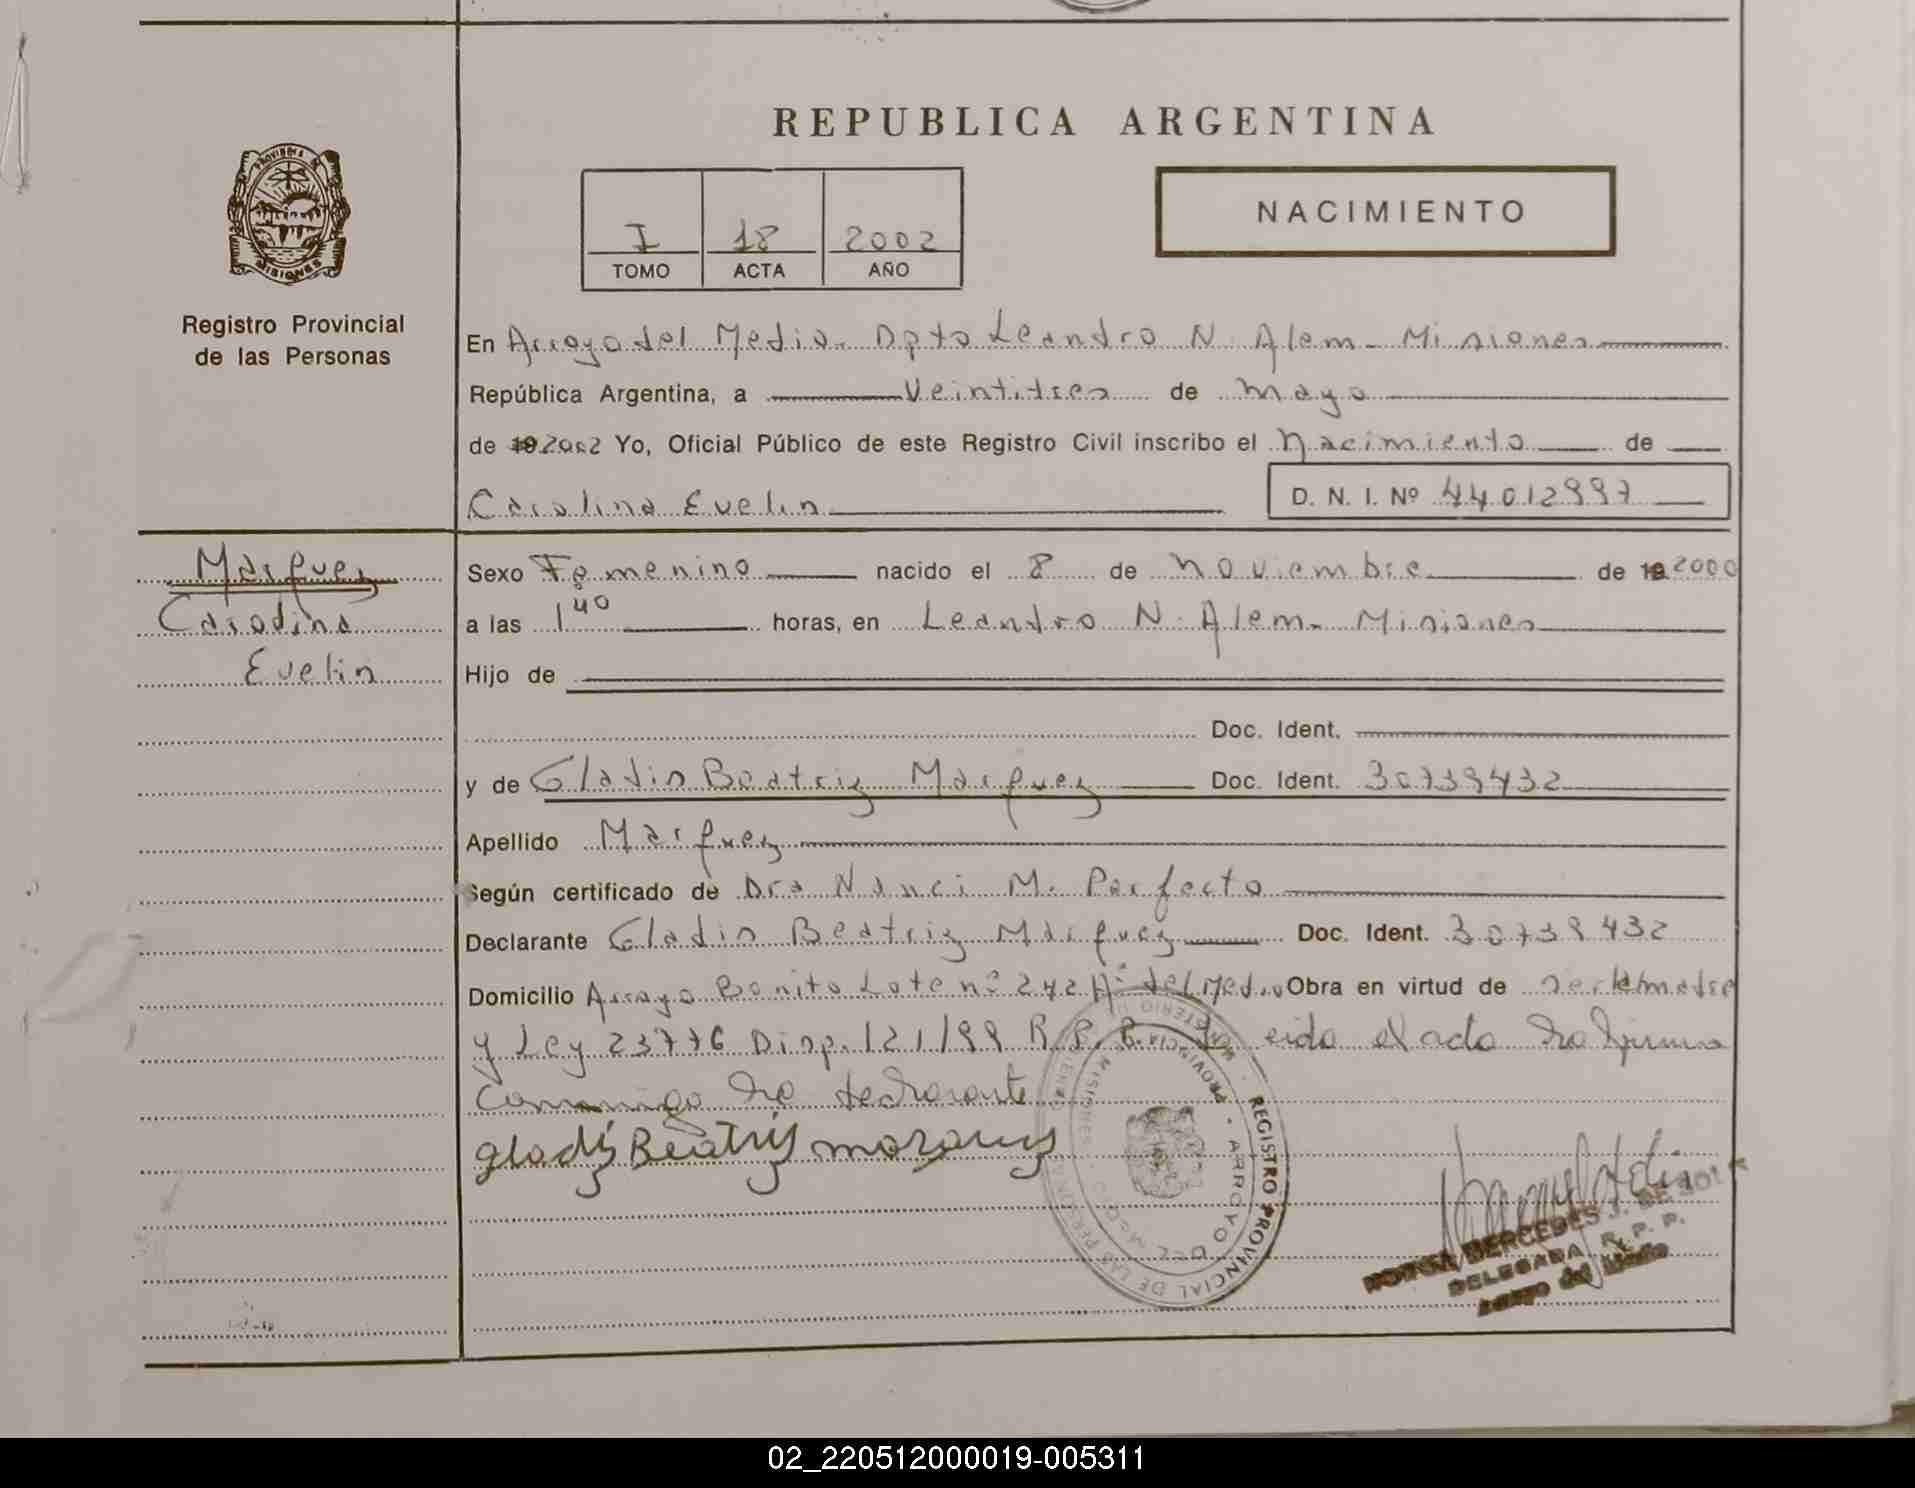 REPUBLICA ARGENTINA
PROVINCIA DE
MISIONES
Registro Provincial
de las Personas
I 18 2002
TOMO ACTA AÑO
NACIMIENTO
En Arroyo del Medio - Dpto Leandro N. Alem - Misiones
República Argentina, a Veintitres de mayo
de 19 2002 Yo, Oficial Público de este Registro Civil inscribo el Nacimiento de
Carolina Evelin D. N. I. Nº 44012997
Marquez
Carolina
Evelin
Sexo Femenino nacido el 8 de Noviembre de 19 2000
a las 1 40 horas, en Leandro N. Alem - Misiones
Hijo de
Doc. Ident.
y de Gladis Beatriz Marquez Doc. Ident. 30739432
Apellido Marquez
Según certificado de Dra Nanci M. Perfecto
Declarante Gladis Beatriz Marquez Doc. Ident. 30739432
Domicilio Arroyo Bonito Lote nº 242 Aº del Medio Obra en virtud de ser la madre
y Ley 23776 Disp. 121/99 R. P. P. Leido el acta la firma
Conmigo la declarante
gladis Beatris marquez
REGISTRO PROVINCIAL DE LAS PERSONAS
PROVINCIA DE MISIONES
ARROYO DEL MEDIO
MERCEDES J. DE
DELEGADA R. P. P.
Arroyo del Medio
02_220512000019-005311